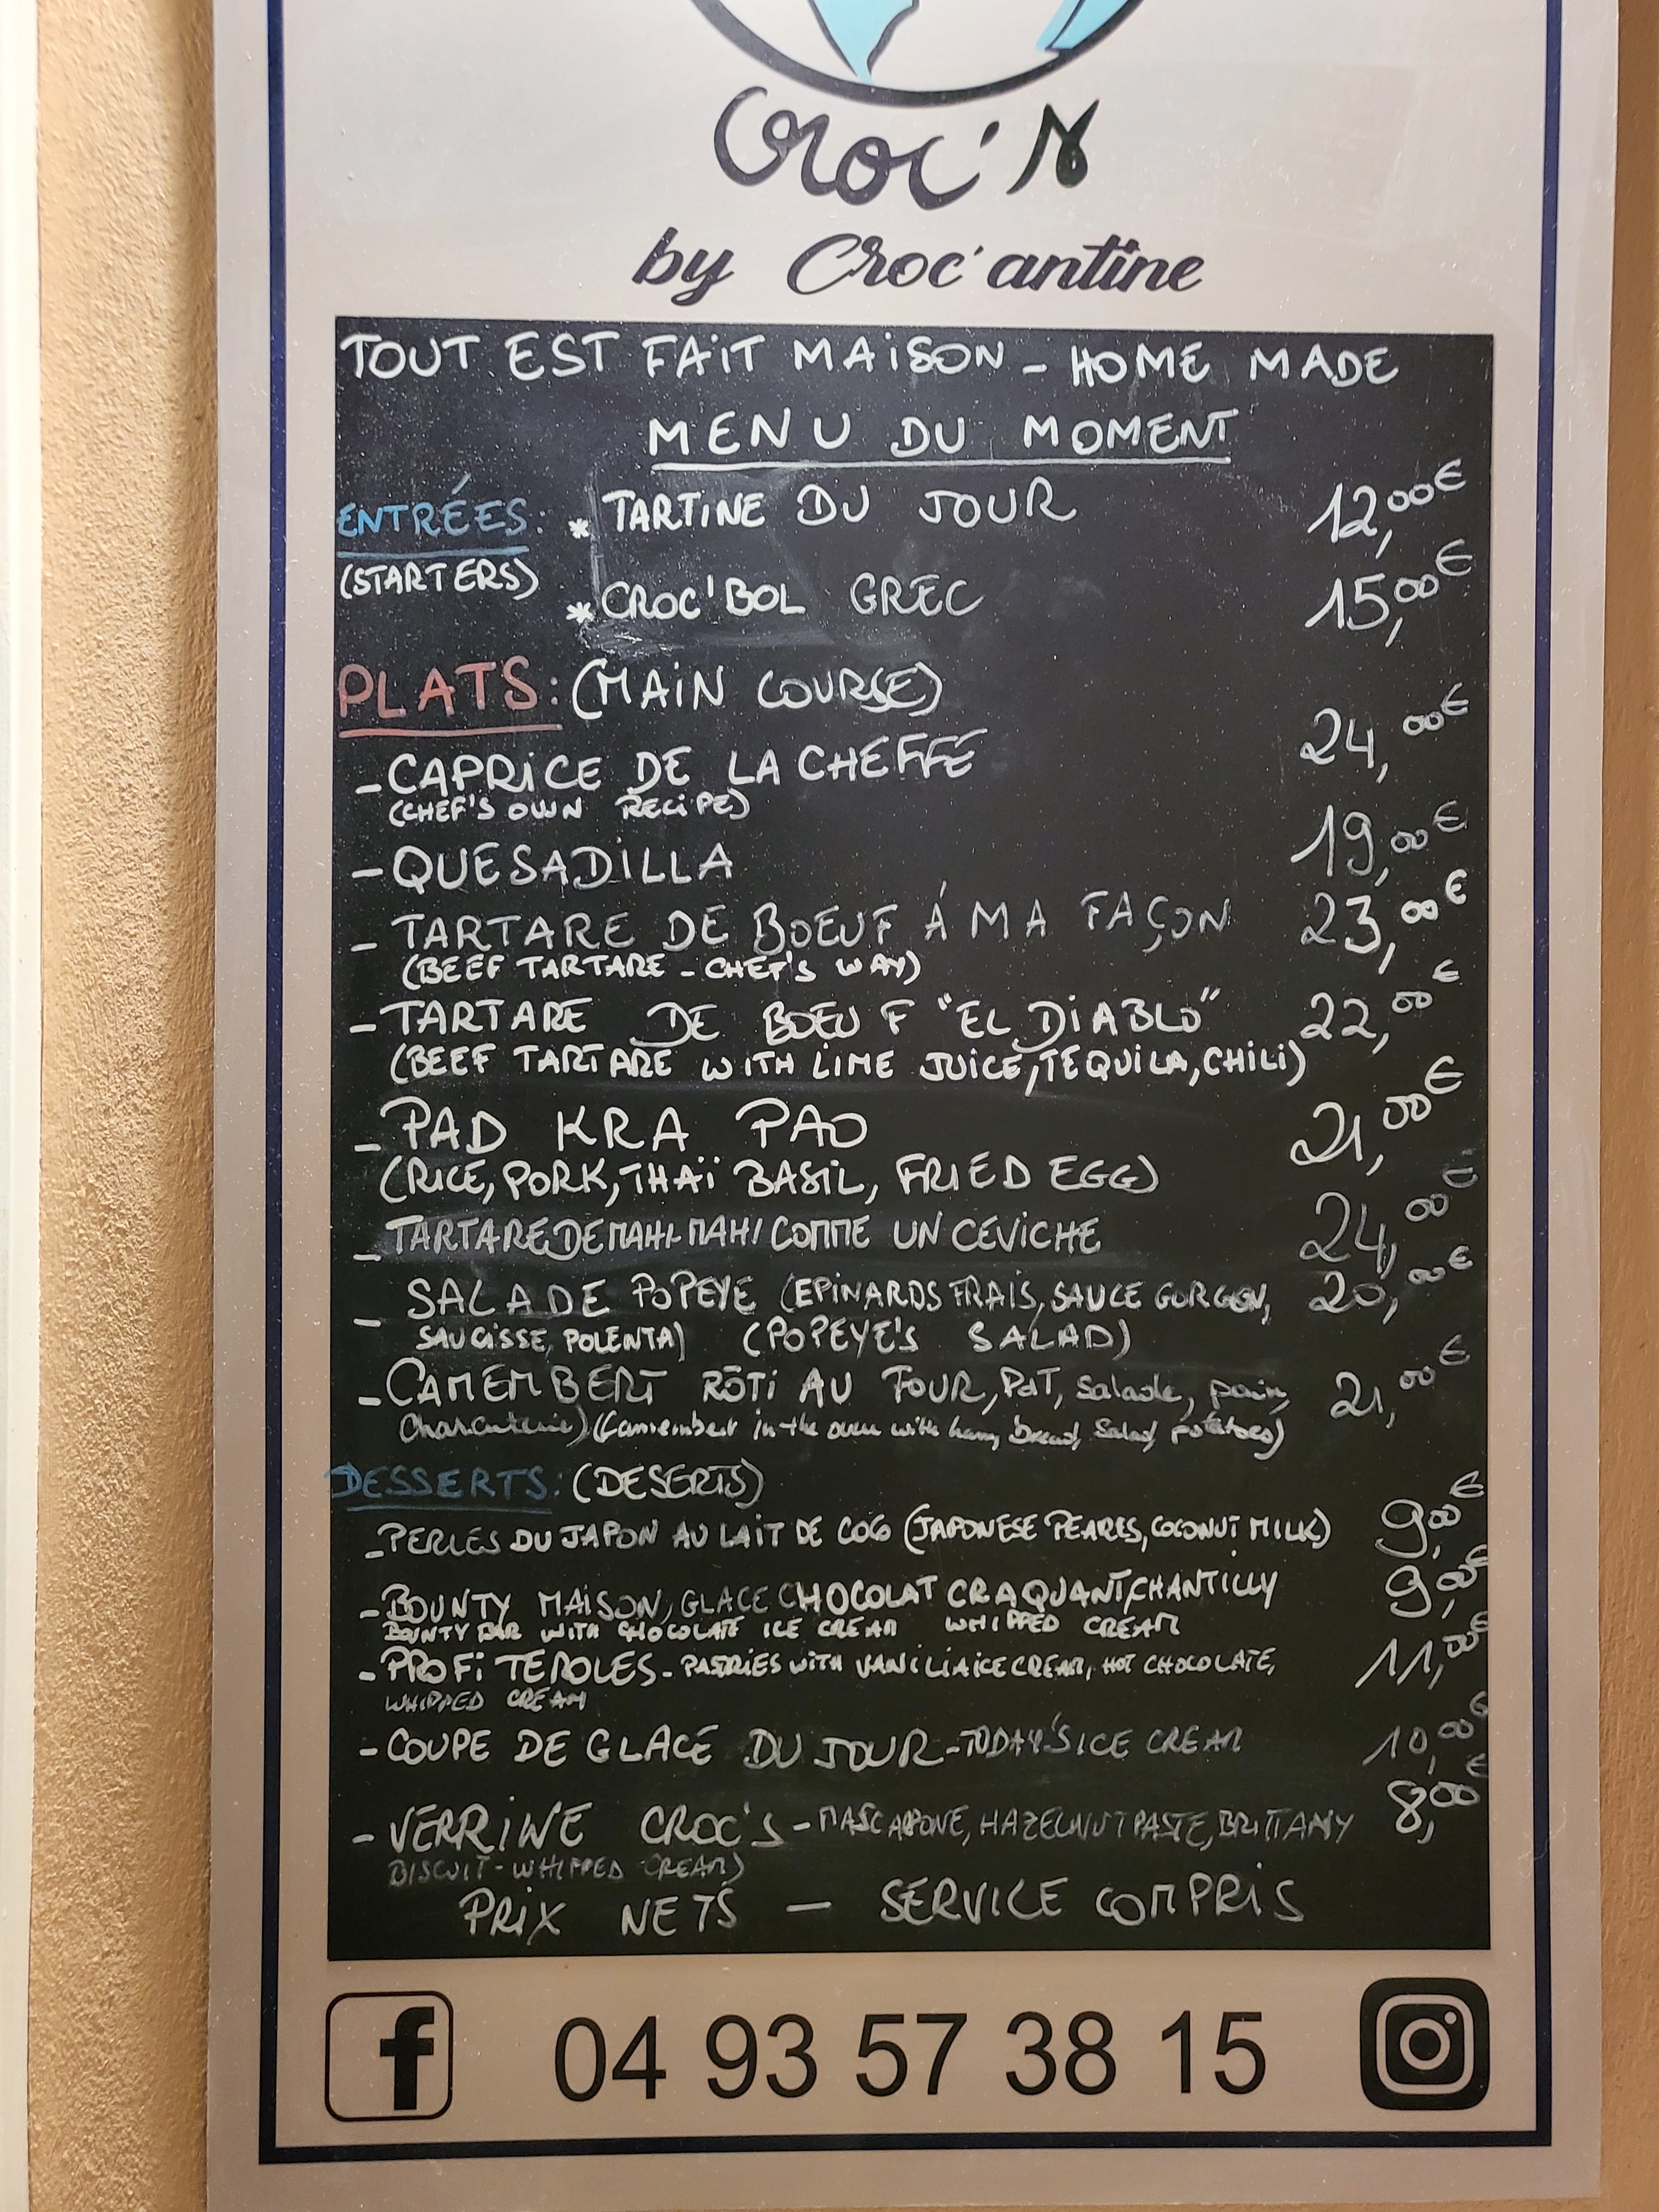 Croc'N
by Croc'antine
TOUT EST FAIT MAISON - HOME MADE
MENU DU MOMENT
ENTRÉES: * TARTINE DU JOUR 12,00€
(STARTERS)
* CROC'BOL GREC 15,00€
PLATS: (MAIN COURSE)
- CAPRICE DE LA CHEFFE 24,00€
(CHEF'S OWN RECIPE)
- QUESADILLA 19,00€
- TARTARE DE BOEUF Á MA FAÇON 23,00€
(BEEF TARTARE - CHEF'S WAY)
- TARTARE DE BOEUF "EL DIABLO" 22,00€
(BEEF TARTARE WITH LIME JUICE, TEQUILA, CHILI)
- PAD KRA PAO 21,00€
(RICE, PORK, THAÏ BASIL, FRIED EGG)
- TARTARE DE MAHI-MAHI COMME UN CEVICHE 24,00€
- SALADE POPEYE (EPINARDS FRAIS, SAUCE GORGON, 20,00€
SAUCISSE, POLENTA) (POPEYE'S SALAD)
- CAMEMBERT RÔTI AU FOUR, PdT, salade, pain, 21,00€
Charcuterie) (Camembert in the oven with ham, bread, salad, potatoes)
DESSERTS: (DESERTS)
- PERLES DU JAPON AU LAIT DE COCO (JAPONESE PEARLS, COCONUT MILK) 9,00€
- BOUNTY MAISON, GLACE CHOCOLAT CRAQUANT, CHANTILLY 9,00€
BOUNTY BAR WITH CHOCOLATE ICE CREAM WHIPPED CREAM
- PROFITEROLES - PASTRIES WITH VANILIA ICE CREAM, HOT CHOCOLATE, 11,00€
WHIPPED CREAM
- COUPE DE GLACE DU JOUR - TODAY'S ICE CREAM 10,00€
- VERRINE CROC'S - MASCARPONE, HAZELNUT PASTE, BRITTANY 8,00€
BISCUIT - WHIPPED CREAM)
PRIX NETS - SERVICE COMPRIS
04 93 57 38 15